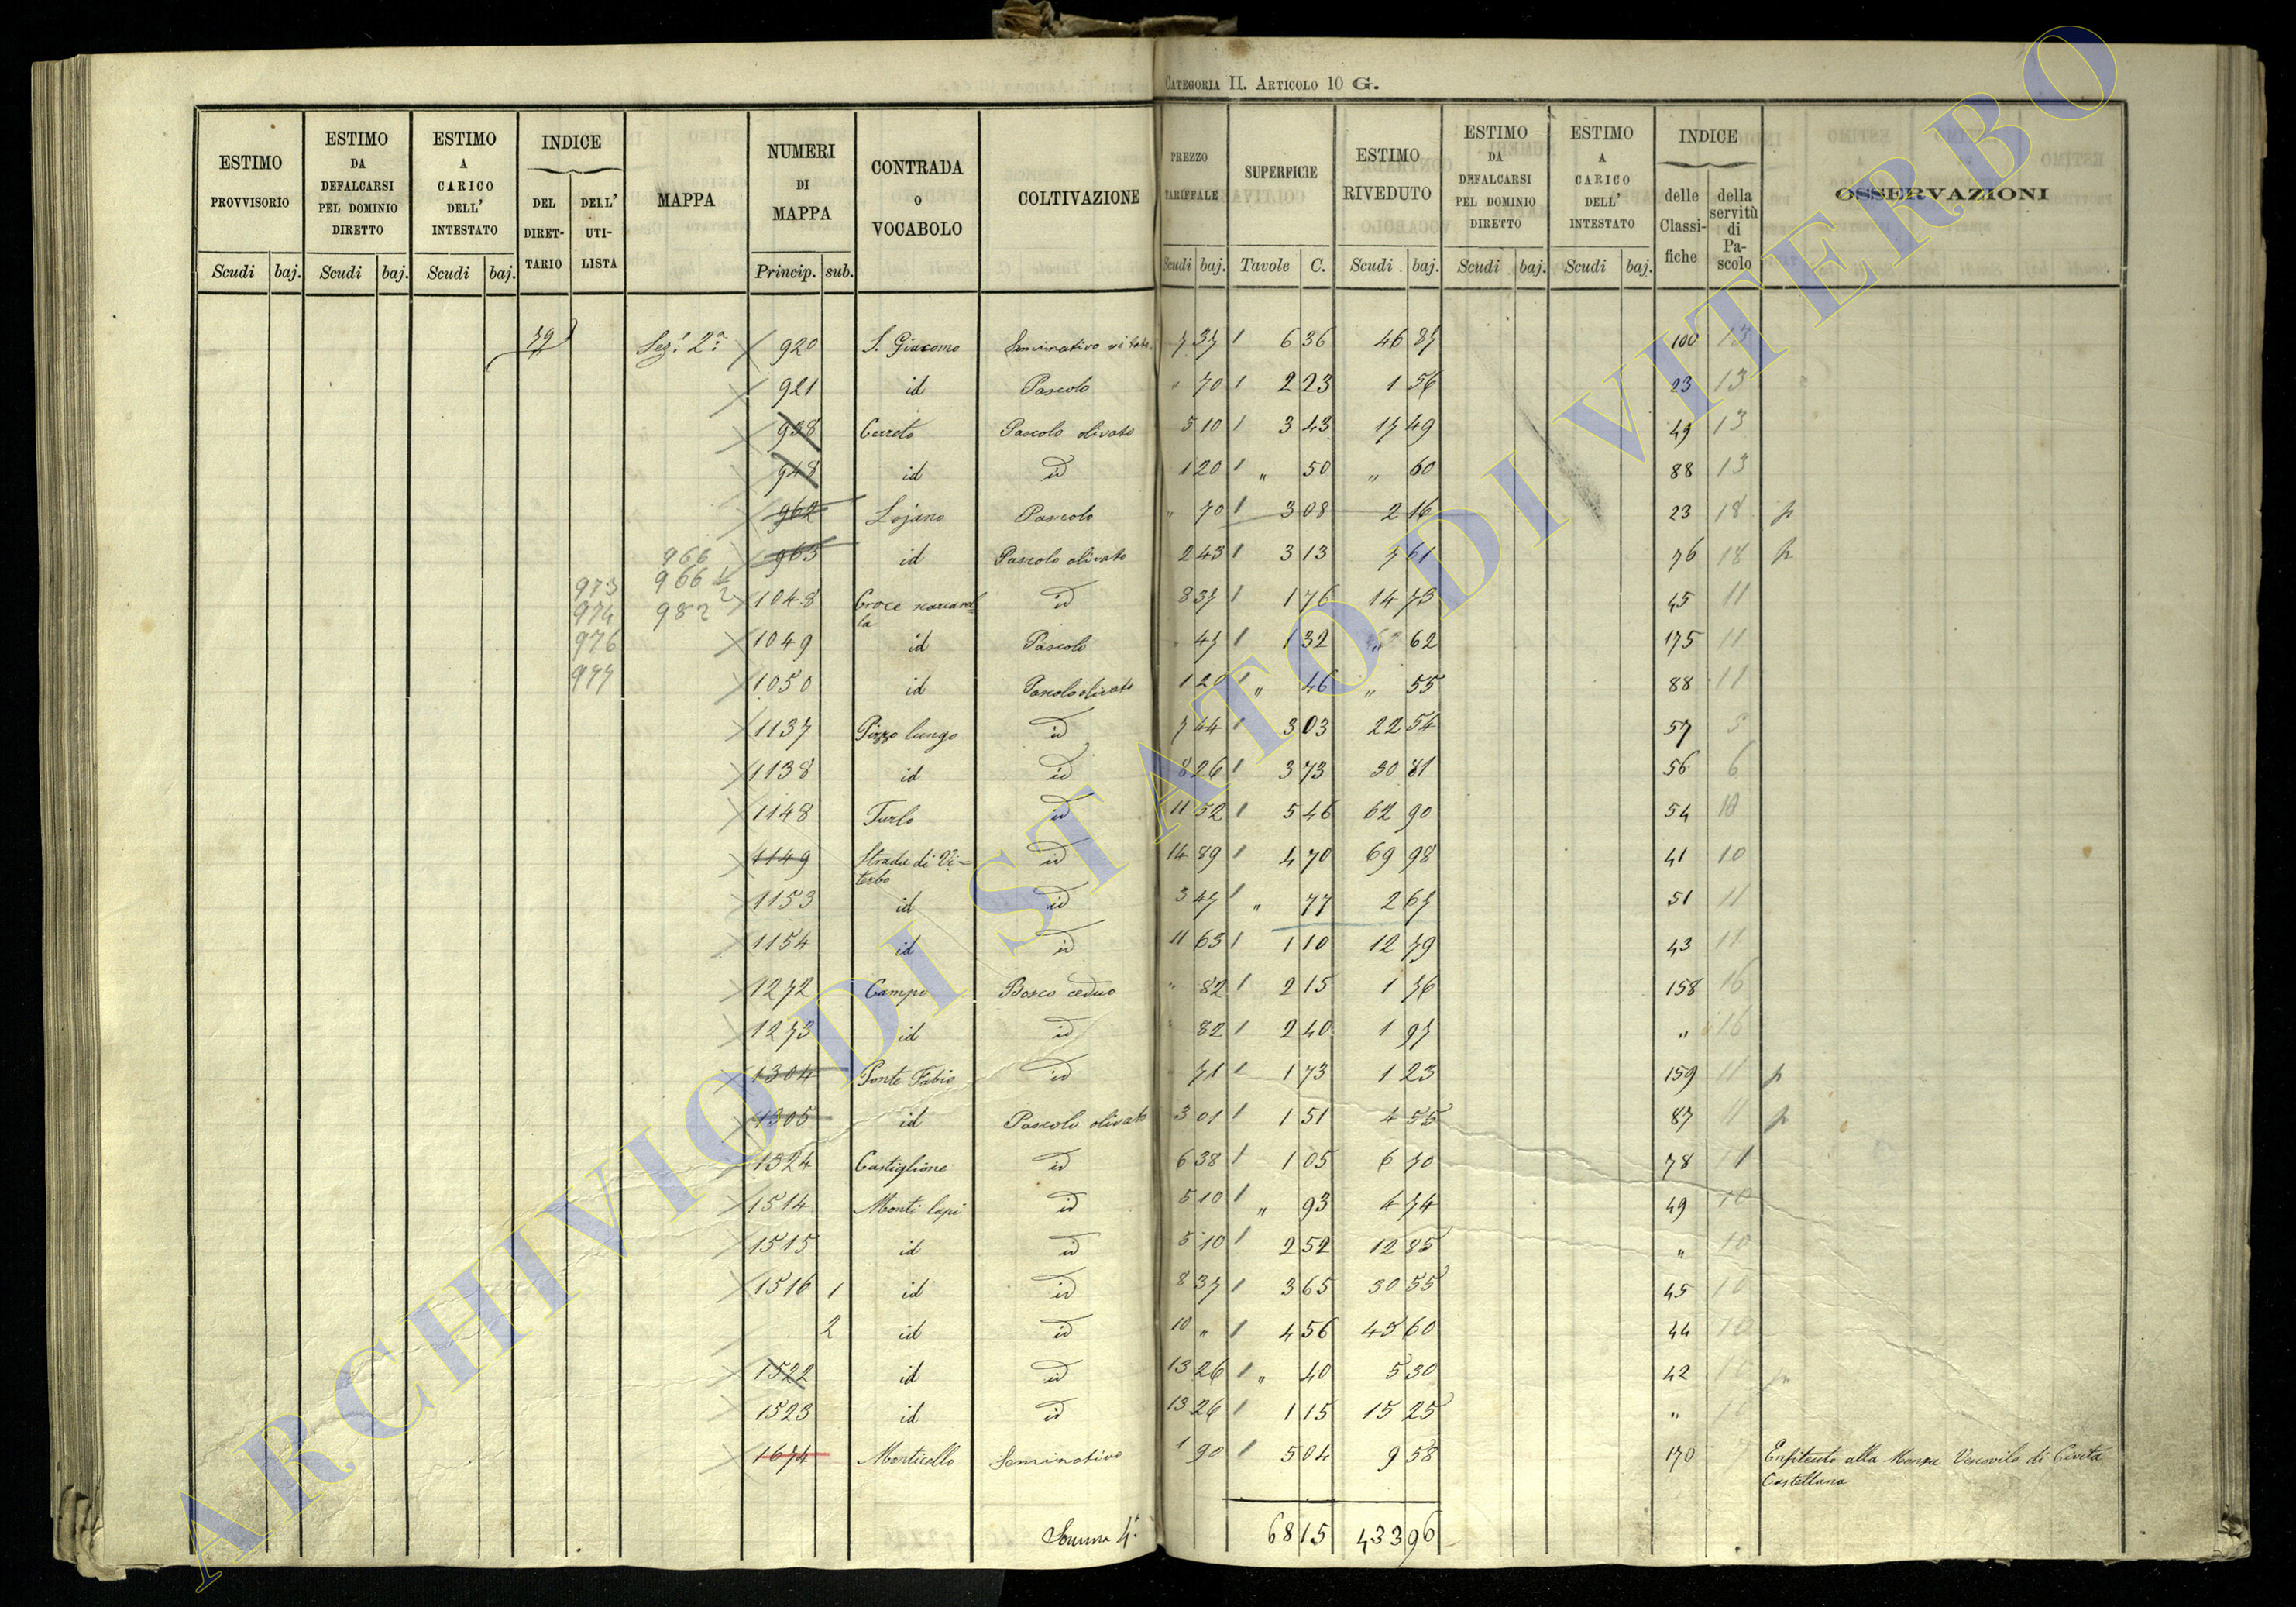 CATEGORIA II. ARTICOLO 10 G.
ESTIMO PROVVISORIO Scudi baj. ESTIMO DA DEFALCARSI PEL DOMINIO DIRETTO Scudi baj. ESTIMO A CARICO DELL' INTESTATO Scudi baj. INDICE DEL DIRETTARIO DELL' UTILISTA MAPPA NUMERI DI MAPPA Princip. sub. CONTRADA O VOCABOLO COLTIVAZIONE PREZZO TARIFFALE Scudi baj. SUPERFICIE Tavole C. ESTIMO RIVEDUTO Scudi baj. ESTIMO DA DEFALCARSI PEL DOMINIO DIRETTO Scudi baj. ESTIMO A CARICO DELL' INTESTATO Scudi baj. INDICE delle Classifiche della servitù di Pascolo OSSERVAZIONI
79 Sez: 2a: 920 S. Giacomo Seminativo vitato 7 37 6 36 46 87 100 13
921 id Pascolo " 70 2 23 1 56 23 13
938 Cerreto Pascolo olivato 5 10 3 43 17 49 49 13
948 id id 1 20 " 50 " 60 88 13
962 Lojano Pascolo " 70 3 08 2 16 23 18 p
966 963 id Pascolo olivato 2 43 3 13 7 61 76 18 p
973 966 1/2
974 982 1048 Croce scarcarella id 8 37 1 76 14 73 45 11
976 1049 id Pascolo " 47 1 32 " 62 175 11
977 1050 id Pascolo olivato 1 20 " 46 " 55 88 11
1137 Pizzo lungo id 7 44 3 03 22 54 57 5
1138 id id 8 26 3 73 30 81 56 6
1148 Turlo id 11 52 5 46 62 90 54 10
1149 Strada di Viterbo id 14 89 4 70 69 98 41 10
1153 id id 3 47 " 77 2 67 51 11
1154 id id 11 63 1 10 12 79 43 11
1272 Campo Bosco ceduo " 82 2 15 1 76 158 16
1273 id id " 82 2 40 1 97 " 16
1304 Ponte Fabio id 71 1 73 1 23 159 11 p
1305 id Pascolo olivato 3 01 1 51 4 55 87 11 p
1324 Castiglione id 6 38 1 05 6 70 78 11
1514 Monti lapi id 5 10 " 93 4 74 49 10
1515 id id 5 10 2 52 12 85 " 10
1516 1 id id 8 37 3 65 30 55 45 10
2 id id 10 " 4 56 45 60 44 10
1522 id id 13 26 " 40 5 30 42 10 p
1523 id id 13 26 1 15 15 25 " 10
1674 Monticello Seminativo 1 90 5 04 9 58 170 7 Enfiteuto alla Mensa Vescovile di Civita
Castellana
Somma 4a: 68 15 433 96
ARCHIVIO DI STATO DI VITERBO